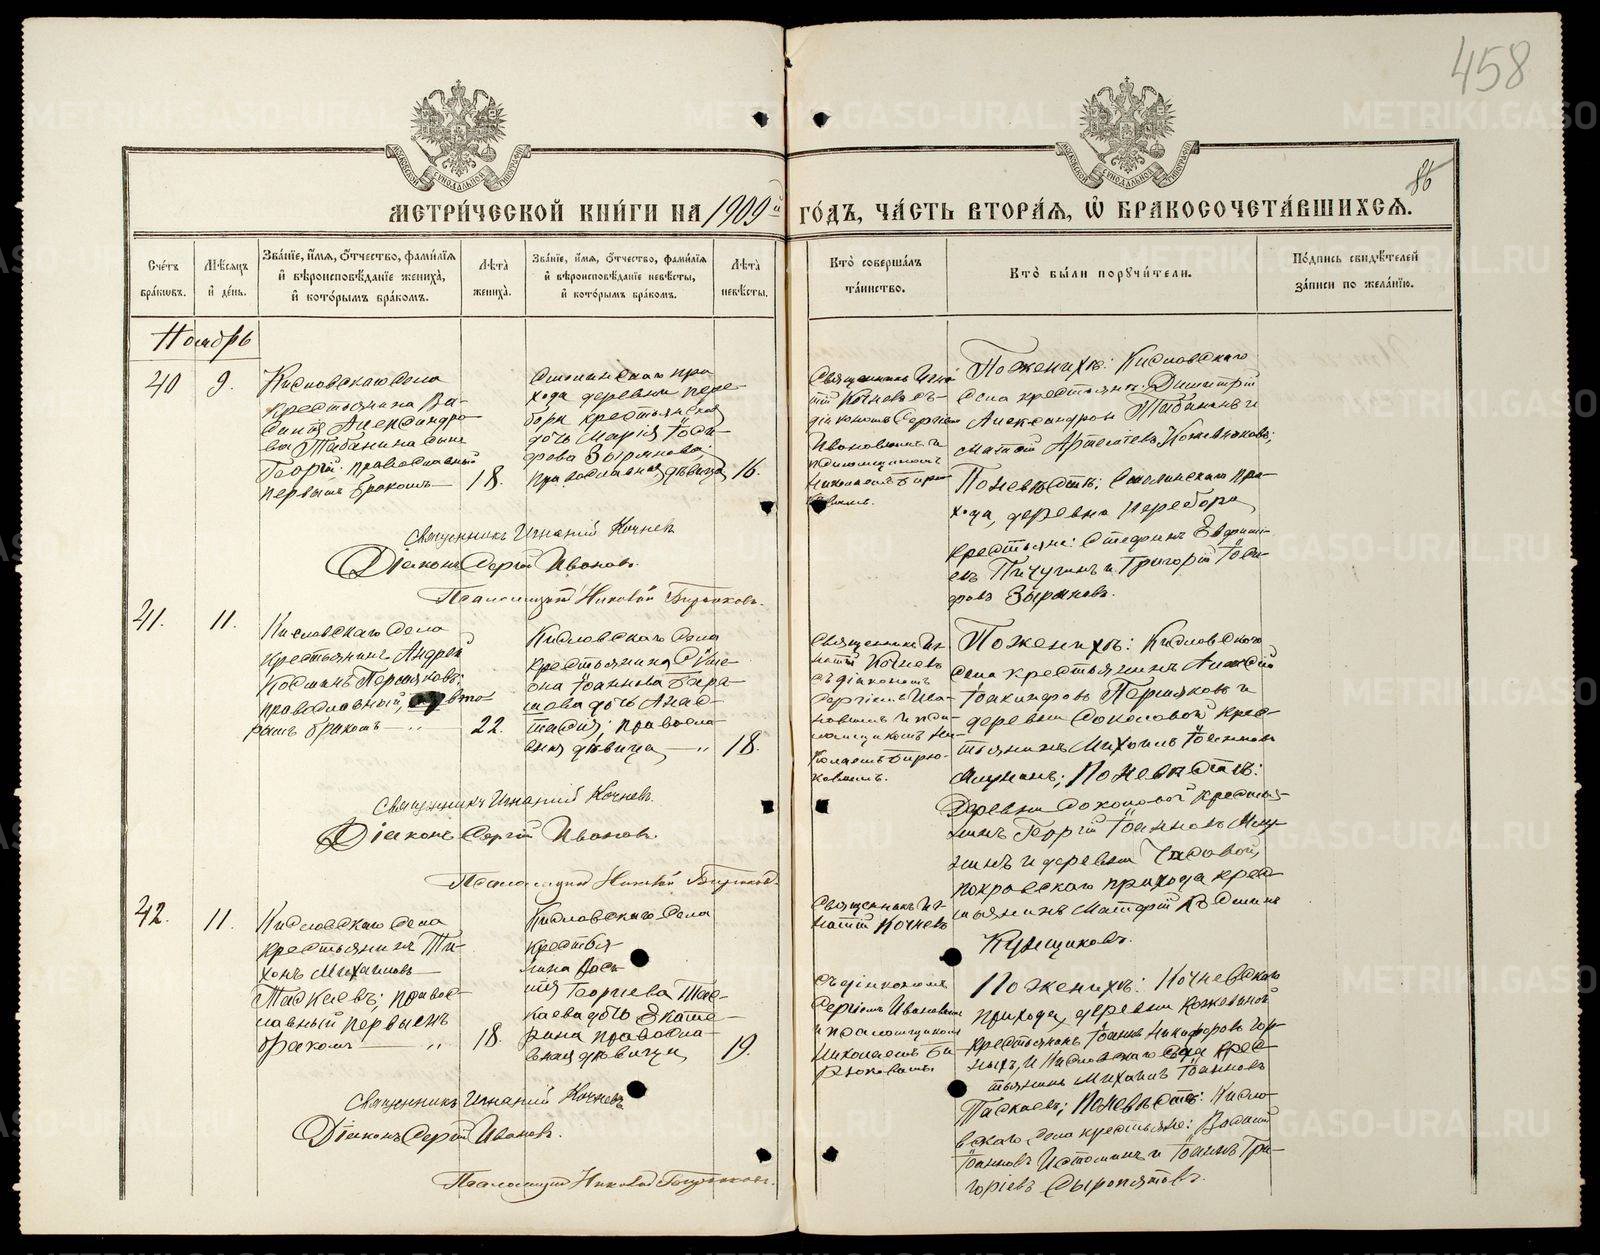 458
86
МЕТРИ́ЧЕСКОЙ КНИ́ГИ НА 1909й ГО́ДЪ, ЧА́СТЬ ВТОРА́Я, Ѽ БРАКОСОЧЕТА́ВШИХСЯ.
Сче́тъ
бра́ковъ.
Мѣ́сяцъ
и҆ де́нь.
Зва́нїе, и҆́мя, ѻ҆́тчество, фами́лїя
и҆ вѣроисповѣ́данїе жениха̀,
и҆ кото́рымъ бра́комъ.
Лѣ́та
жениха̀.
Зва́нїе, и҆́мя, ѻ҆́тчество, фами́лїя
и҆ вѣроисповѣ́данїе невѣ́сты,
и҆ кото́рымъ бра́комъ.
Лѣ́та
невѣ́сты.
Кто̀ соверша́лъ
та́инство.
Кто̀ бы́ли порꙋчи́тели.
По́дпись свидѣ́телей
за́писи по жела́нїю.
Ноябрь
40
9.
Кисловскаго села
крестьянина Ва-
силія Александро-
ва Табанина сынъ
Георгій православный
первымъ бракомъ
18.
прихода деревни пере-
бора крестьянская
дочь Марія Іоси-
фова Зырянова;
православная дѣвица
16.
Священникъ Игна-
тій Кочневъ съ
діакономъ Сергіемъ
Ивановымъ и
псаломщикомъ
Николаемъ Бирю-
ковымъ.
По женихѣ: Кисловскаго
села крестьяне: Димитрій
Александровъ Табанинъ и
Артеміевъ Кожевниковъ;
По невѣстѣ: при-
хода, деревни Перебора
крестьяне: Стефанъ
Пичугинъ и Григорій Іоси-
фовъ Зыряновъ.
Священникъ Игнатій Кочневъ
Діаконъ Сергій Ивановъ.
Псаломщикъ Николай Бирюковъ.
41.
11.
Кисловскаго села
крестьянинъ Андрей
Косминъ Пермяковъ;
православный, вто-
рымъ бракомъ — „
22.
Кисловскаго села
крестьянина Симе-
она Іоаннова Бара-
шова дочь Анас-
тасія; правосла-
вная дѣвица — „
18.
Священникъ Иг-
натій Кочневъ
съ діакономъ
Сергіемъ Ива-
новымъ и пса-
ломщикомъ Ни-
колаемъ Бирю-
ковымъ.
По женихѣ: Кисловскаго
села крестьянинъ Алексій
Іоакинфовъ Пермяковъ и
деревни Соколовой крес-
тьянинъ Михаилъ Іоанновъ
По невѣстѣ:
Деревни Соколовой крестья-
нинъ Георгій Іоанновъ
и деревни Часовой,
покровскаго прихода крес-
тьянинъ
Кунщиковъ.
Священникъ Игнатій Кочневъ.
Діаконъ Сергій Ивановъ.
Псаломщикъ Николай Бирюковъ.
42.
11.
Кисловскаго села
крестьянинъ Ти-
хонъ Михаиловъ
Таскаевъ; правос-
лавный первымъ
бракомъ — „
18.
Кисловскаго села
крестья-
нина
Георгіева Тас-
каева дочь Екате-
рина правосла-
вная дѣвица
19.
Священникъ Иг-
натій Кочневъ
съ діакономъ
Сергіемъ Ивановымъ
и псаломщикомъ
Николаемъ Би-
рюковымъ.
По женихѣ:
прихода, деревни
крестьянинъ Іоаннъ Никифоровъ Гор-
ныхъ, и Кисловскаго села крес-
тьянинъ Михаилъ Іоанновъ
Таскаевъ; По невѣстѣ: Кисло-
вскаго села крестьяне:
Іоанновъ Истоминъ и Іоаннъ Гри-
горіевъ Сыропятовъ.
Священникъ Игнатій Кочневъ
Діаконъ Сергій Ивановъ.
Псаломщикъ Николай Бирюковъ.
METRIKI.GASO-URAL.RU